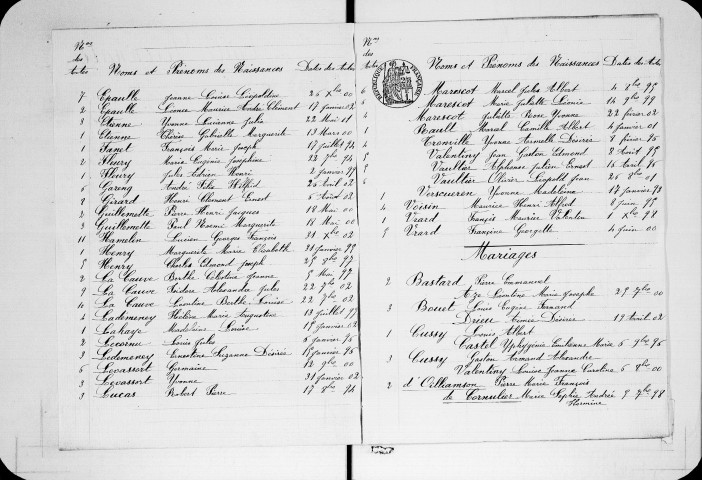 Nos des Actes Noms et Prénoms des Naissances Dates des Actes
7 Epaulle Jeanne Louise Léopoldine 26 Xbre 00
2 Epaulle Léonce Maurice André Clément 17 janvier 02
3 Etienne Yvonne Lucienne Julia 22 Mai 01
1 Etienne Thérèse Gabrielle Marguerite 13 Mars 00
1 Fanet François Marie Joseph 17 juillet 94
2 Fleury Marie Eugénie Joséphine 22 7bre 94
1 Fleury Jules Adrien Henri 2 janvier 99
1 Gareng André Félix Wilfrid 26 avril 02
9 Girard Henri Clément Ernest 6 Août 02
2 Guillemette Pierre Henri Jacques 18 Mai 00
3 Guillemette Paul Noémie Marguerite 18 Mai 00
11 Hamelin Lucien Georges François 31 Xbre 02
1 Henry Marguerite Marie Elisabeth 21 janvier 95
5 Henry Charles Edmond Joseph 25 8bre 97
2 La Cauve Berthe Célestine Jeanne 5 Mai 92
9 La Cauve Isidore Alexandre Jules 22 7bre 02
10 La Cauve Léontine Berthe Louise 22 7bre 02
4 Lademeney Hélène Marie Augustine 13 juillet 97
1 Lahaye Madeleine Louise 17 janvier 02
2 Lecornu Louis Jules 5 janvier 95
3 Ledemeney Ernestine Suzanne Désirée 15 janvier 96
6 Levassort Germaine 12 9bre 00
3 Levassort Yvonne 31 janvier 02
3 Lucas Robert Pierre 17 8bre 94
Nos des Actes Noms et Prénoms des Naissances Dates des Actes
RÉPUBLIQUE FRANÇAISE
6 Marescot Marcel Jules Albert 4 8bre 95
Marescot Marie Juliette Léonie 14 9bre 99
4 Marescot Juliette Rose Yvonne 22 février 02
1 Rault Marcel Camille Albert 4 janvier 01
4 Tronville Yvonne Armelle Désirée 8 février 95
4 Valentiny Jean Gaston Edmond 2 Août 95
Vautier Alphonse Julien Ernest 16 Avril 96
6 Vautier Olivier Léopold Jean 21 8bre 01
Verscueren Yvonne Madeleine 17 janvier 93
4 Voisin Maurice Henri Alfred 8 juin 95
1 Vrard François Maurice Valentin 1 Xbre 98
5 Vrard Francine Georgette 4 juin 00
Mariages
2 Bastard Pierre Emmanuel
Léontine Marie Josèphe 25 7bre 00
3 Bouet Louis Eugène Fernand
Désirée 19 Avril 02
1 Cussy Louis Albert
Castel Yphygénie Lucienne Marie 5 9bre 96
3 Cussy Gaston Armand Alexandre
Valentiny Louise Jeanne Caroline 6 8bre 00
2 d'Oilliamson Pierre Marie François
de Cornulier Marie Sophie Andrée 5 7bre 98
Hermine